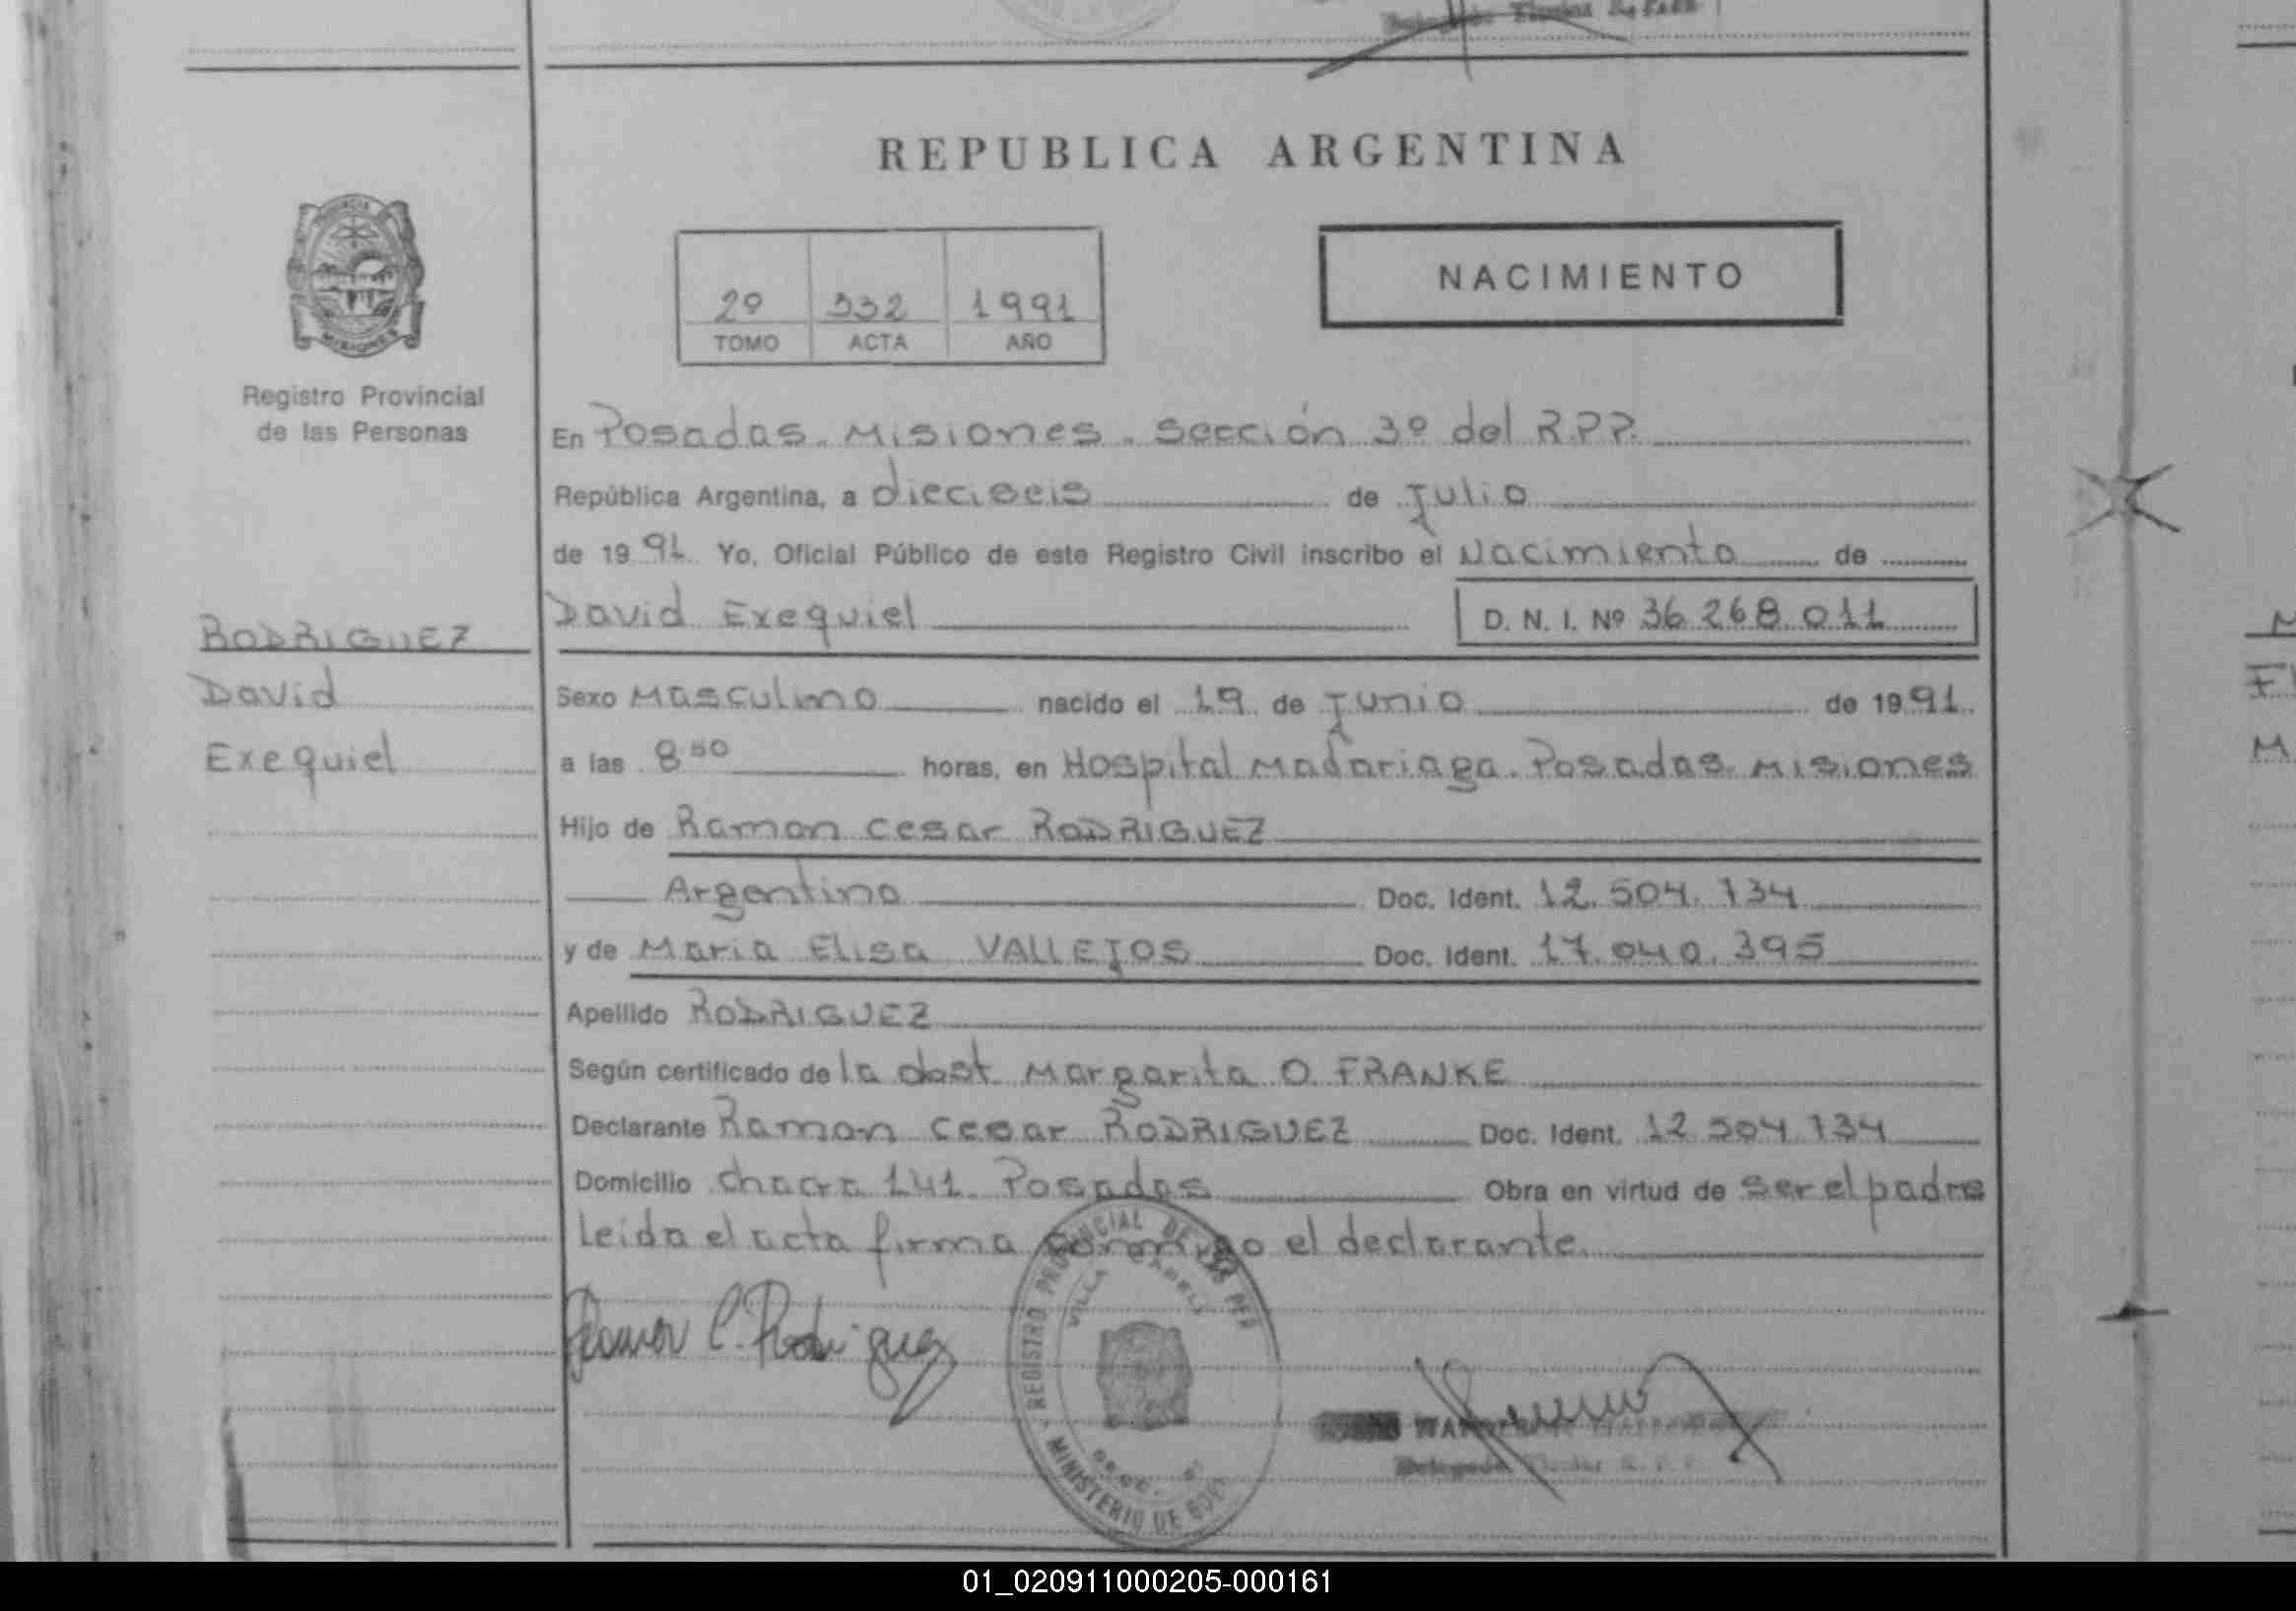 REPUBLICA ARGENTINA
PROVINCIA
MISIONES
Registro Provincial
de las Personas
2º 332 1991
TOMO ACTA AÑO
NACIMIENTO
En Posadas. Misiones. Sección 3º del R.P.P.
República Argentina, a dieciseis de Julio
de 1991. Yo, Oficial Público de este Registro Civil inscribo el Nacimiento de
David Exequiel D. N. I. Nº 36.268.011
RODRIGUEZ
David
Exequiel
Sexo Masculino nacido el 19 de Junio de 1991.
a las 8 50 horas, en Hospital Madariaga. Posadas. Misiones
Hijo de Ramon Cesar RODRIGUEZ
Argentino Doc. Ident. 12.504.734
y de Maria Elisa VALLEJOS Doc. Ident. 17.040.395
Apellido RODRIGUEZ
Según certificado de la obst. Margarita O. FRANKE
Declarante Ramon Cesar RODRIGUEZ Doc. Ident. 12.504.734
Domicilio Chacra 141. Posadas Obra en virtud de ser el padre
Leida el acta firma conmigo el declarante.
Ramon C. Rodriguez
REGISTRO PROVINCIAL DE LAS PER
VILLA
MINISTERIO DE GOB
01_020911000205-000161